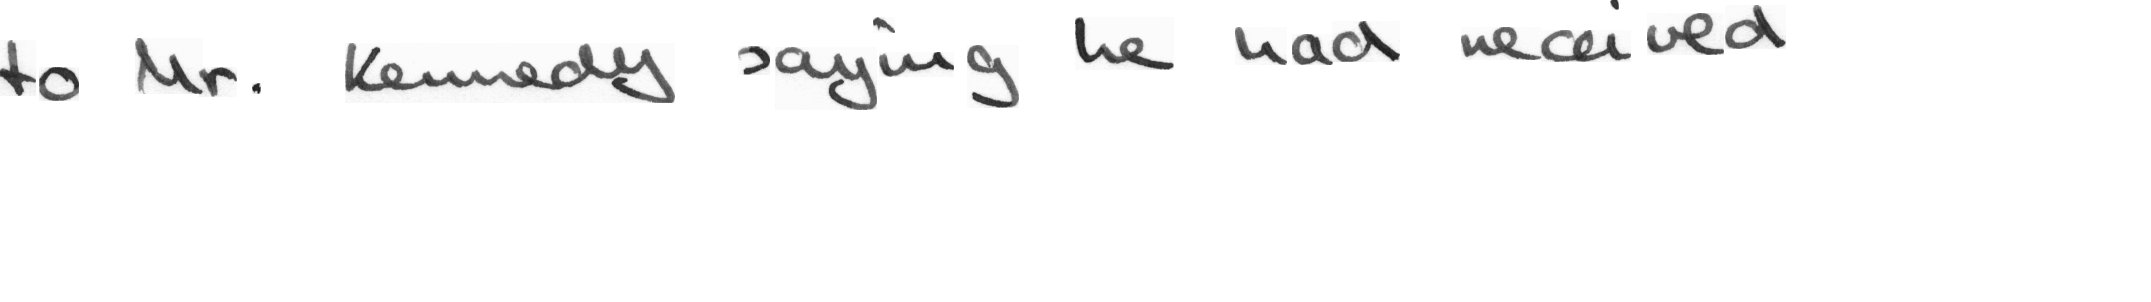 to Mr. Kennedy saying he had received